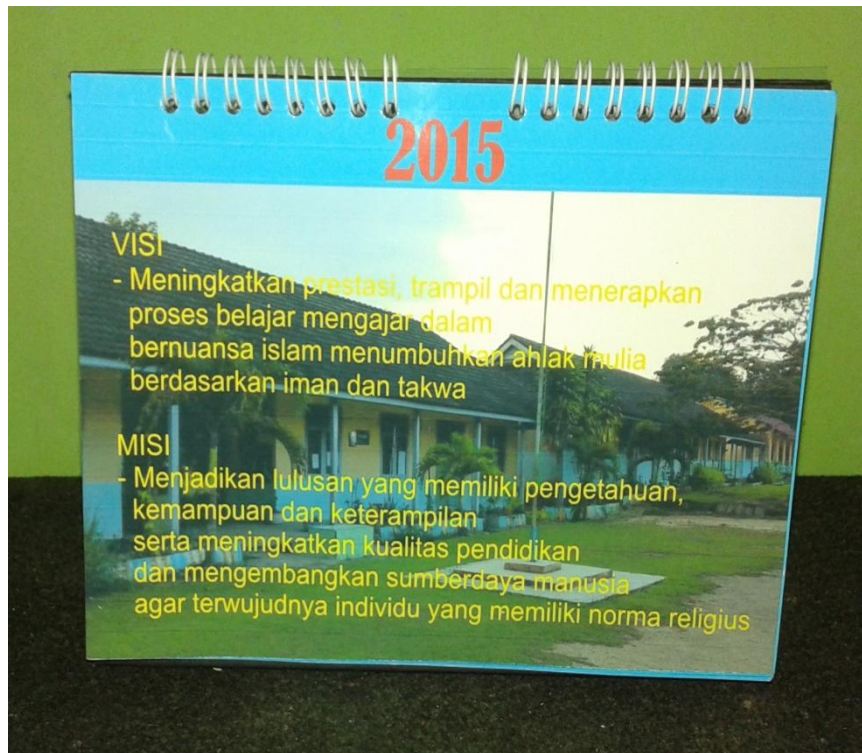 2015
VISI
- Meningkatkan prestasi, trampil dan menerapkan
proses belajar mengajar dalam
bernuansa islam menumbuhkan ahlak mulia
berdasarkan iman dan takwa
MISI
- Menjadikan lulusan yang memiliki pengetahuan,
kemampuan dan keterampilan
serta meningkatkan kualitas pendidikan
dan mengembangkan sumberdaya manusia
agar terwujudnya individu yang memiliki norma religius